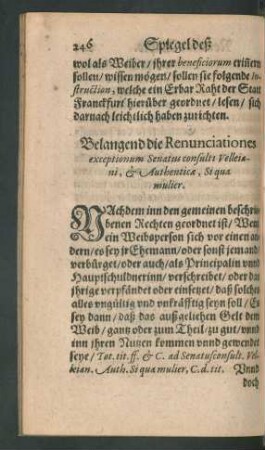 246 Spiegel deß
wol als Weiber/ jhrer beneficiorum eriñern
sollen/ wissen mögen/ sollen sie folgende In-
struction, welche ein Erbar Raht der Statt
Franckfurt hierüber geordnet/ lesen/ sich
darnach leichtlich haben zurichten.
Belangend die Renunciationes
exceptionum Senatus consulti Velleia-
ni, & Authenticæ, Si qua
mulier.
NAchdem inn den gemeinen beschrie-
benen Rechten geordnet ist/ Wenn
ein Weibsperson sich vor einen an-
dern/ es sey jr Ehemann/ oder sonst jemand
verbürget/ oder auch/ als Principalin vnd
Hauptschuldnerinn/ verschreibet/ oder das
jhrige verpfändet oder einseyet/ daß solches
alles vngültig vnd vnkräfftig seyn soll/ Es
sey dann/ daß das außgeliehen Gelt dem
Weib/ gantz oder zum Theil/ zu gut/ vnnd
inn jhren Nutzen kommen vnnd gewendet
seye/ Tot. tit. ff. & C. ad Senatusconsult. Vel-
leian. Auth. Si qua mulier, C. d. tit. Vnnd
doch